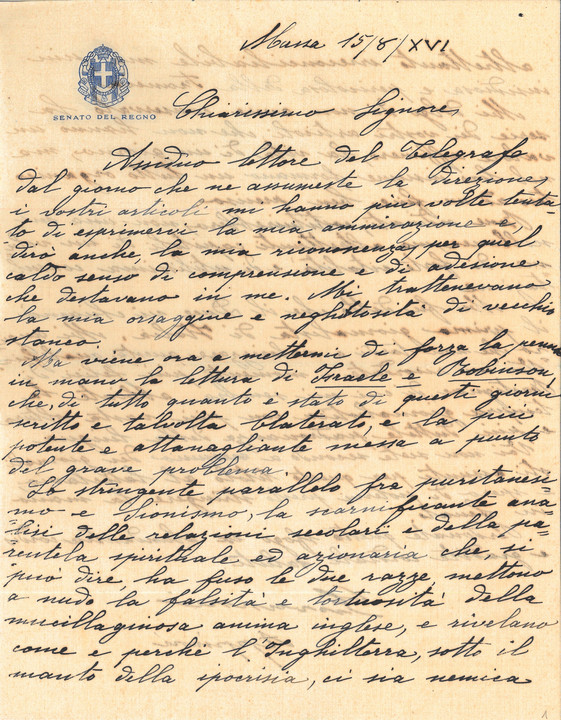 Massa 15/8/XVI
SENATO DEL REGNO
Chiarissimo Signore,
Assiduo lettore del Telegrafo
dal giorno che ne assumeste la direzione,
i vostri articoli mi hanno più volte tenta-
to di esprimervi la mia ammirazione e,
dirò anche, la mia riconoscenza, per quel
caldo senso di comprensione e di adesione
che destavano in me. Mi trattenevano
la mia orsaggine e neghittosità di vecchio
stanco.
Ma viene ora a mettermi di forza la penna
in mano la lettura di Israele e Robinson,
che, di tutto quanto è stato di questi giorni
scritto e talvolta blaterato, è la più
potente e attanagliante messa a punto
del grave problema.
Lo stringente parallelo fra puritanesi-
mo e Sionismo, la scarnificante ana-
lisi delle relazioni secolari e della pa-
rentela spirituale ed azionaria che, si
può dire, ha fuso le due razze, mettono
a nudo la falsità e tortuosità della
mucillaginosa anima inglese, e rivelano
come e perchè l'Inghilterra, sotto il
manto della ipocrisia, ci sia nemica
1